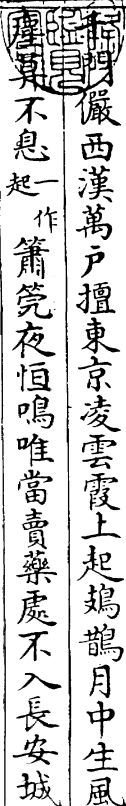 千門儼西漢萬戶擅東京凌雲霞上起鳷鵲月中生風
塵莫不息一作起簫筦夜恒鳴唯當賣藥處不入長安城